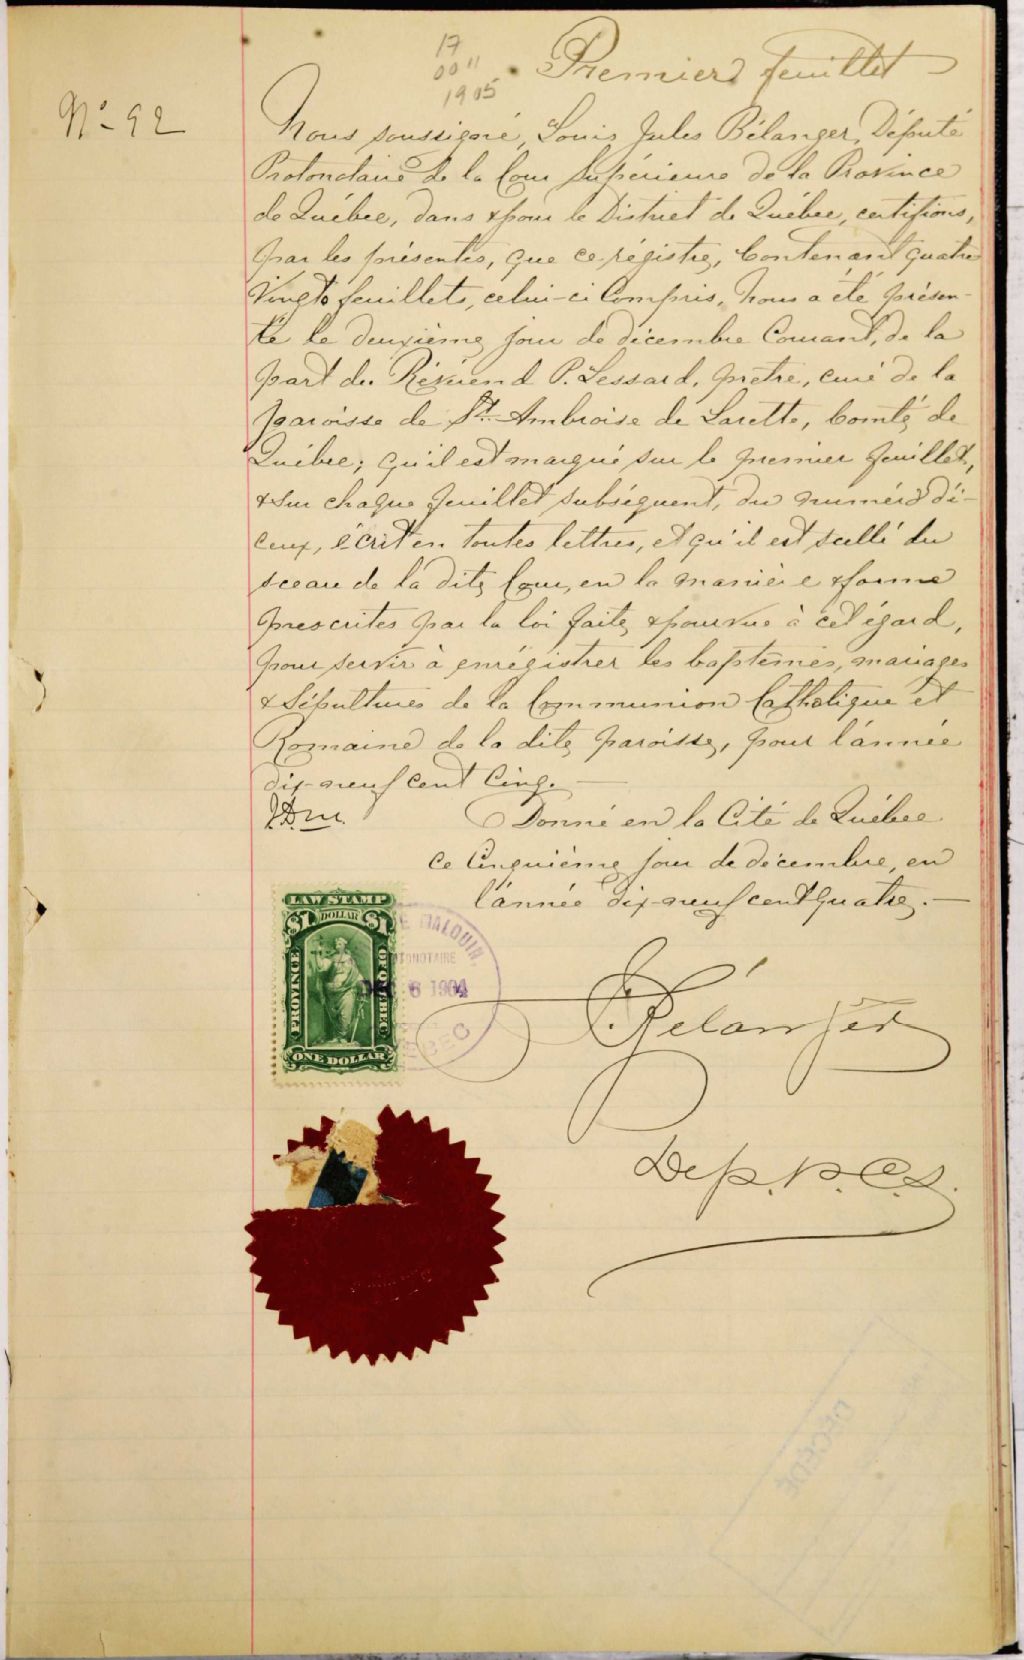 17
00 11
1905
Premier feuillet
No 92
Nous soussigné, Louis Jules Bélanger, Député
Protonotaire de la Cour Supérieure de la Province
de Québec, dans & pour le District de Québec, certifions,
par les présentes, que ce régistre, Contenant quatre
Vingts feuillets, celui-ci Compris, Nous a été présen-
té le deuxième jour de décembre Courant, de la
part du Révérend P. Lessard, prêtre, curé de la
paroisse de St. Ambroise de Lorette, Comté de
Québec; qu'il est marqué sur le premier feuillet,
& sur chaque feuillet subséquent, du numéro di-
ceux, écrit en toutes lettres, et qu'il est scellé du
sceau de la dite Cour, en la manière & forme
prescrites par la loi faite & pourvue à cet égard,
pour servir à enrégistrer les baptêmes, mariages
& Sépultures de la Communion Catholique et
Romaine de la dite paroisse, pour l'année
dix-neuf cent Cinq. —
Donné en la Cité de Québec
ce Cinquième jour de décembre, en
l'année dix-neuf cent quatre. —
LAW STAMP
$1 DOLLAR $1
PROVINCE OF QUEBEC
ONE DOLLAR
E MALOUIN,
TONOTAIRE
DEC 6 1904
BEC
Bélanger
Dep. P. C. S.
DÉCÉDÉ